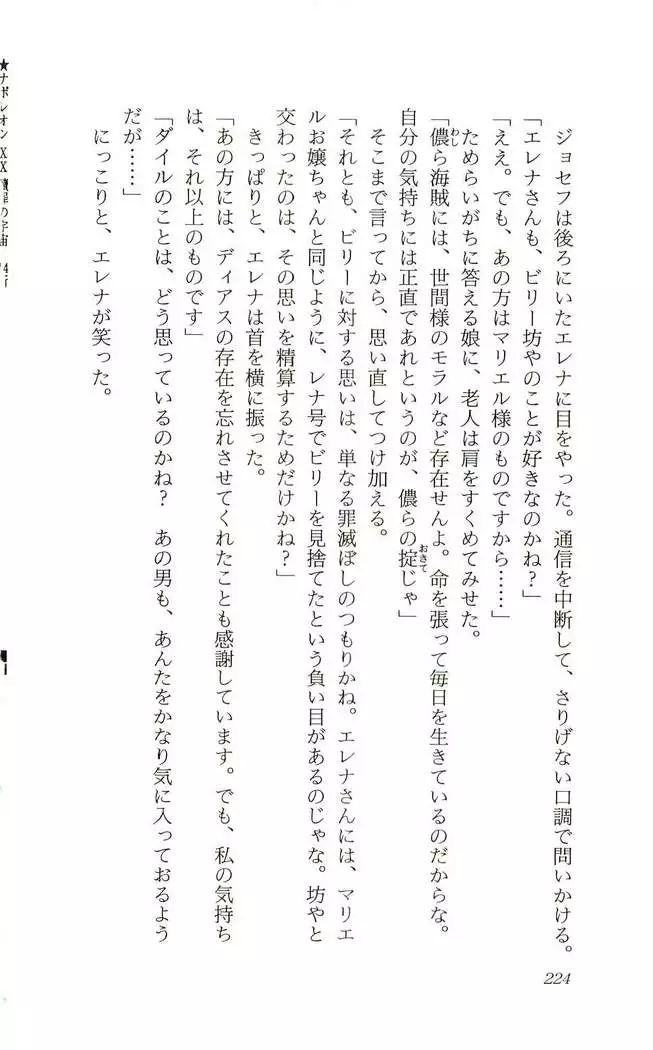 ジョセフは後ろにいたエレナに目をやった。通信を中断して、さりげない口調で問いかける。
「エレナさんも、ビリー坊やのことが好きなのかね？」
「ええ。でも、あの方はマリエル様のものですから……」
ためらいがちに答える娘に、老人は肩をすくめてみせた。
「儂ら海賊には、世間様のモラルなど存在せんよ。命を張って毎日を生きているのだからな。
わし
自分の気持ちには正直であれというのが、儂らの掟じゃ」
おきて
そこまで言ってから、思い直してつけ加える。
「それとも、ビリーに対する思いは、単なる罪滅ぼしのつもりかね。エレナさんには、マリエ
ルお嬢ちゃんと同じように、レナ号でビリーを見捨てたという負い目があるのじゃな。坊やと
交わったのは、その思いを精算するためだけかね？」
きっぱりと、エレナは首を横に振った。
「あの方には、ディアスの存在を忘れさせてくれたことも感謝しています。でも、私の気持ち
は、それ以上のものです」
「ダイルのことは、どう思っているのかね？　あの男も、あんたをかなり気に入っておるよう
だが……」
にっこりと、エレナが笑った。
224